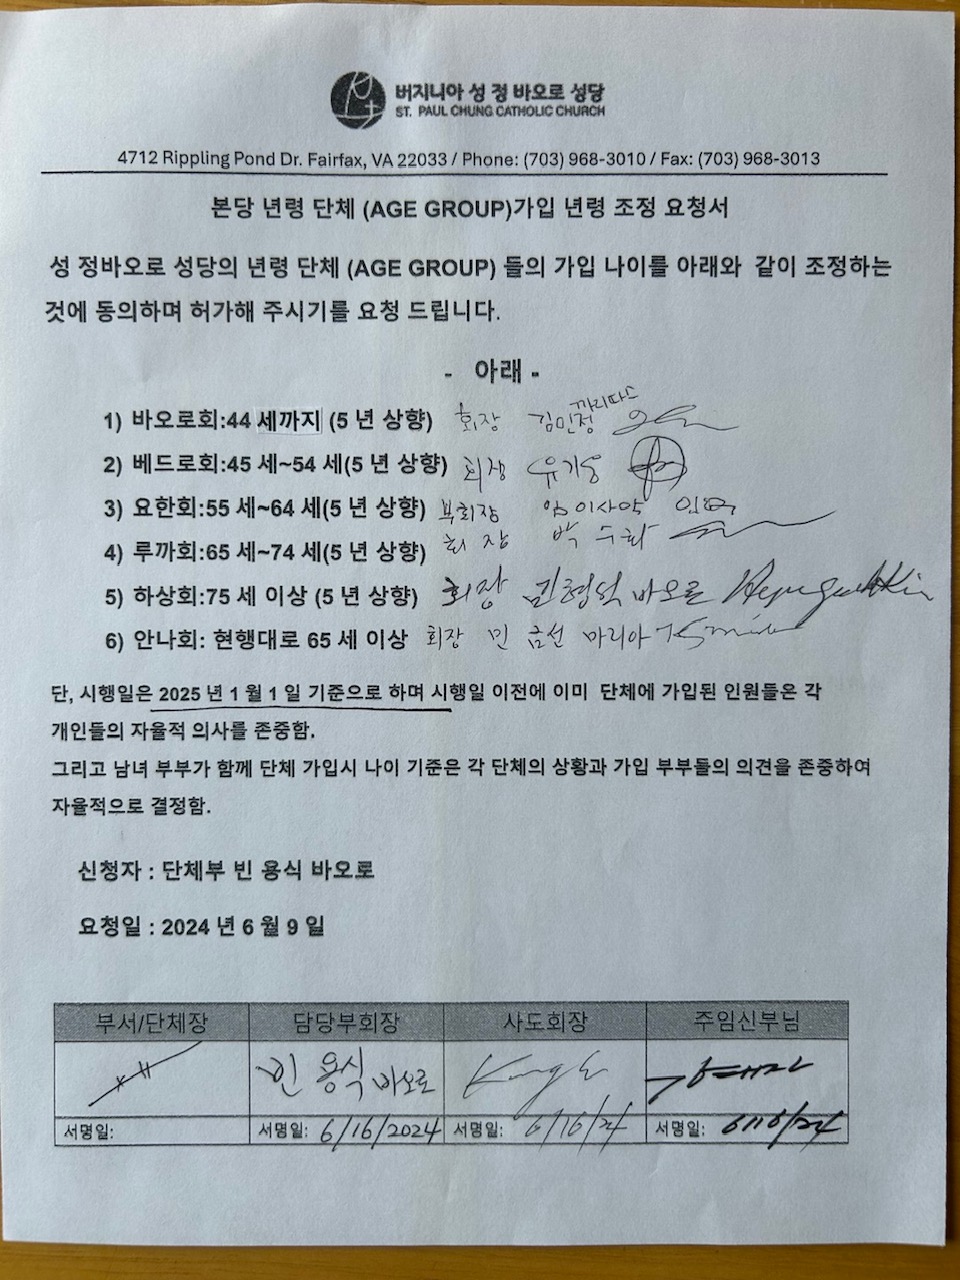 버지니아 성 정 바오로 성당
ST. PAUL CHUNG CATHOLIC CHURCH
4712 Rippling Pond Dr. Fairfax, VA 22033 / Phone: (703) 968-3010 / Fax: (703) 968-3013
본당 년령 단체 (AGE GROUP)가입 년령 조정 요청서
성 정바오로 성당의 년령 단체 (AGE GROUP) 들의 가입 나이를 아래와 같이 조정하는
것에 동의하며 허가해 주시기를 요청 드립니다.
- 아래 -
1) 바오로회:44 세까지 (5 년 상향) 회장 김민정 까리따스
2) 베드로회:45 세~54 세(5 년 상향) 회장 유기
3) 요한회:55 세~64 세(5 년 상향) 부회장 이사악
4) 루까회:65 세~74 세(5 년 상향) 회 장 박 수희
5) 하상회:75 세 이상 (5 년 상향) 회장 김형석 바오로
6) 안나회: 현행대로 65 세 이상 회장 민 금선 마리아
단, 시행일은 2025 년 1 월 1 일 기준으로 하며 시행일 이전에 이미 단체에 가입된 인원들은 각
개인들의 자율적 의사를 존중함.
그리고 남녀 부부가 함께 단체 가입시 나이 기준은 각 단체의 상황과 가입 부부들의 의견을 존중하여
자율적으로 결정함.
신청자 : 단체부 빈 용식 바오로
요청일 : 2024 년 6 월 9 일
부서/단체장 담당부회장 사도회장 주임신부님
빈 용식 바오로
서명일: 서명일: 6/16/2024 서명일: 6/16/24 서명일: 6/16/24